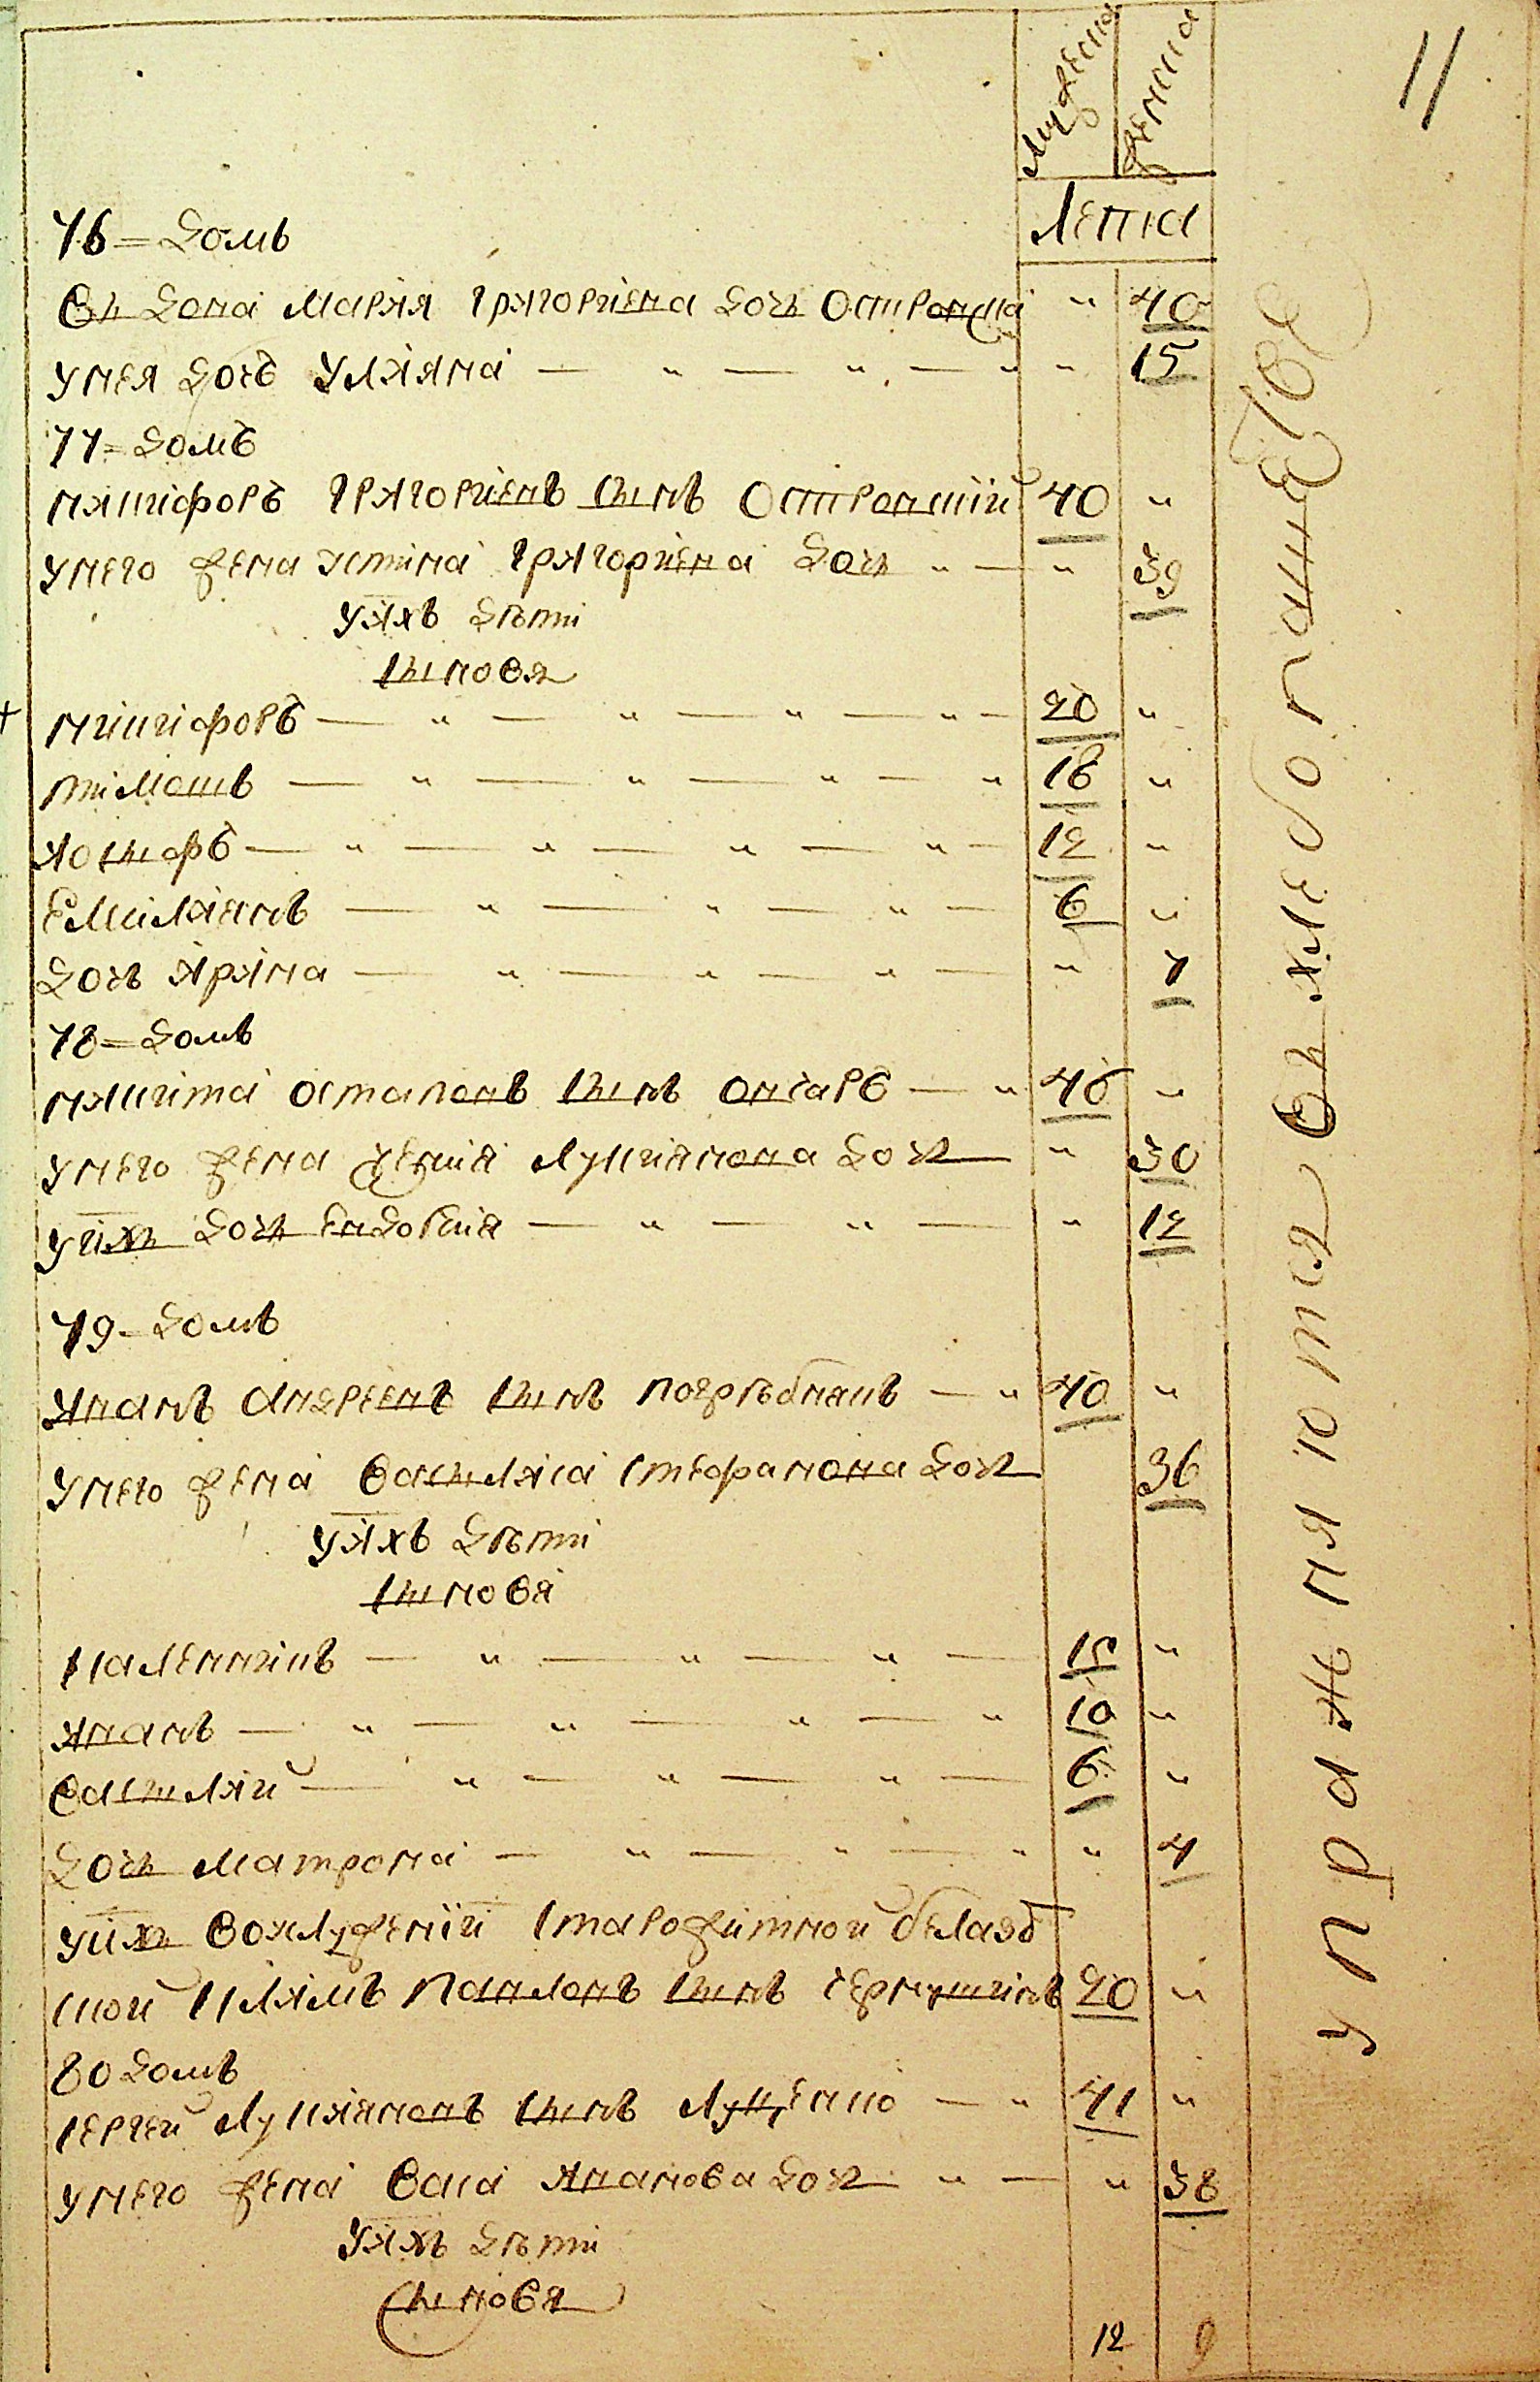 11
Мужеска
Женска
Лета
76 = домъ
Въ дома Мария Григориева дочь Островска " 40
У нея дочь Улияна — " — " — " " 15
77 = домъ
Никифоръ Григориевъ сынъ Островский 40 "
У него жена Устина Григориева дочь " — " 39
У ихъ дѣти
сыновя
Никифоръ — " — " — " — " — 20 "
Тимошь — " — " — " — " 18 "
Иосифъ — " — " — " — " — 12 "
Емилиянъ — " — " — " — 6 "
дочь Ирина — " — " — " — " 7
78 = домъ
Никита Остаповъ сынъ — " 46 "
У него жена Лукиянова дочь " 30
У ихъ дочь Евдокия — " — " — " 12
79 = домъ
Иванъ Андреевъ сынъ Погрѣбнякъ — " 40 "
У него жена Василиса Стефанова дочь 36
У ихъ дѣти
сыновя
Калениикъ — " — " — " — 15 "
Иванъ — " — " — " — " 10 "
Василий — " — " — " — 6 "
дочь Матрона — " — " — " " 4
У ихъ вохлужений Старожитной
ской Климъ Павловъ сынъ 20 "
80 домъ
Сергей Лукияновъ сынъ Луценко — " 41 "
У него жена Васа Иванова дочь " — " 38
У ихъ дѣти
сыновя
12 9
упражняются въ хлебопашестве